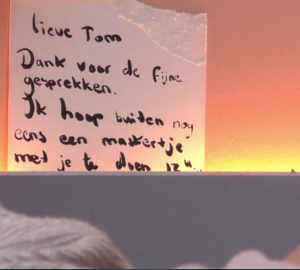 lieve Tom
Dank voor de fijne
gesprekken.
Ik hoop buiten nog
eens een maskertje
met je te doen